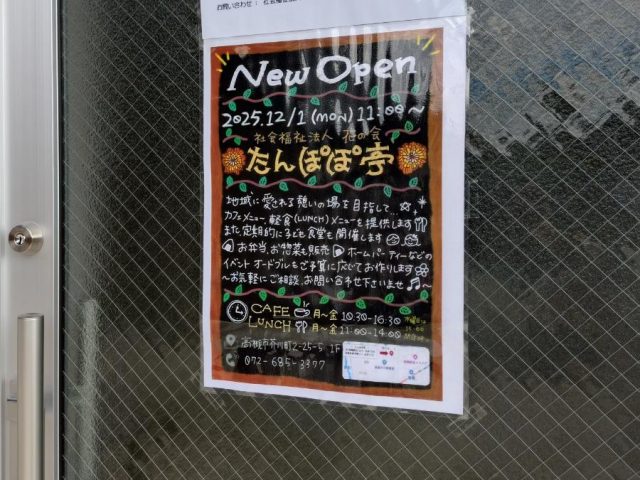 お問い合わせ： 社会福祉法
New Open
2025.12/1 (MON) 11:00～
社会福祉法人 花の会
たんぽぽ亭
地域に愛される憩いの場を目指して...
カフェメニュー、軽食(LUNCH)メニューを提供します
また定期的に子ども食堂も開催します
お弁当、お惣菜も販売 ホームパーティーなどの
イベントオードブルもご予算に応じてお作りします
～お気軽にご相談、お問い合わせ下さいませ～
CAFE 月～金 10:30-16:30
LUNCH 月～金 11:00-14:00
高槻市芥川町2-25-5 1F
072-685-3977